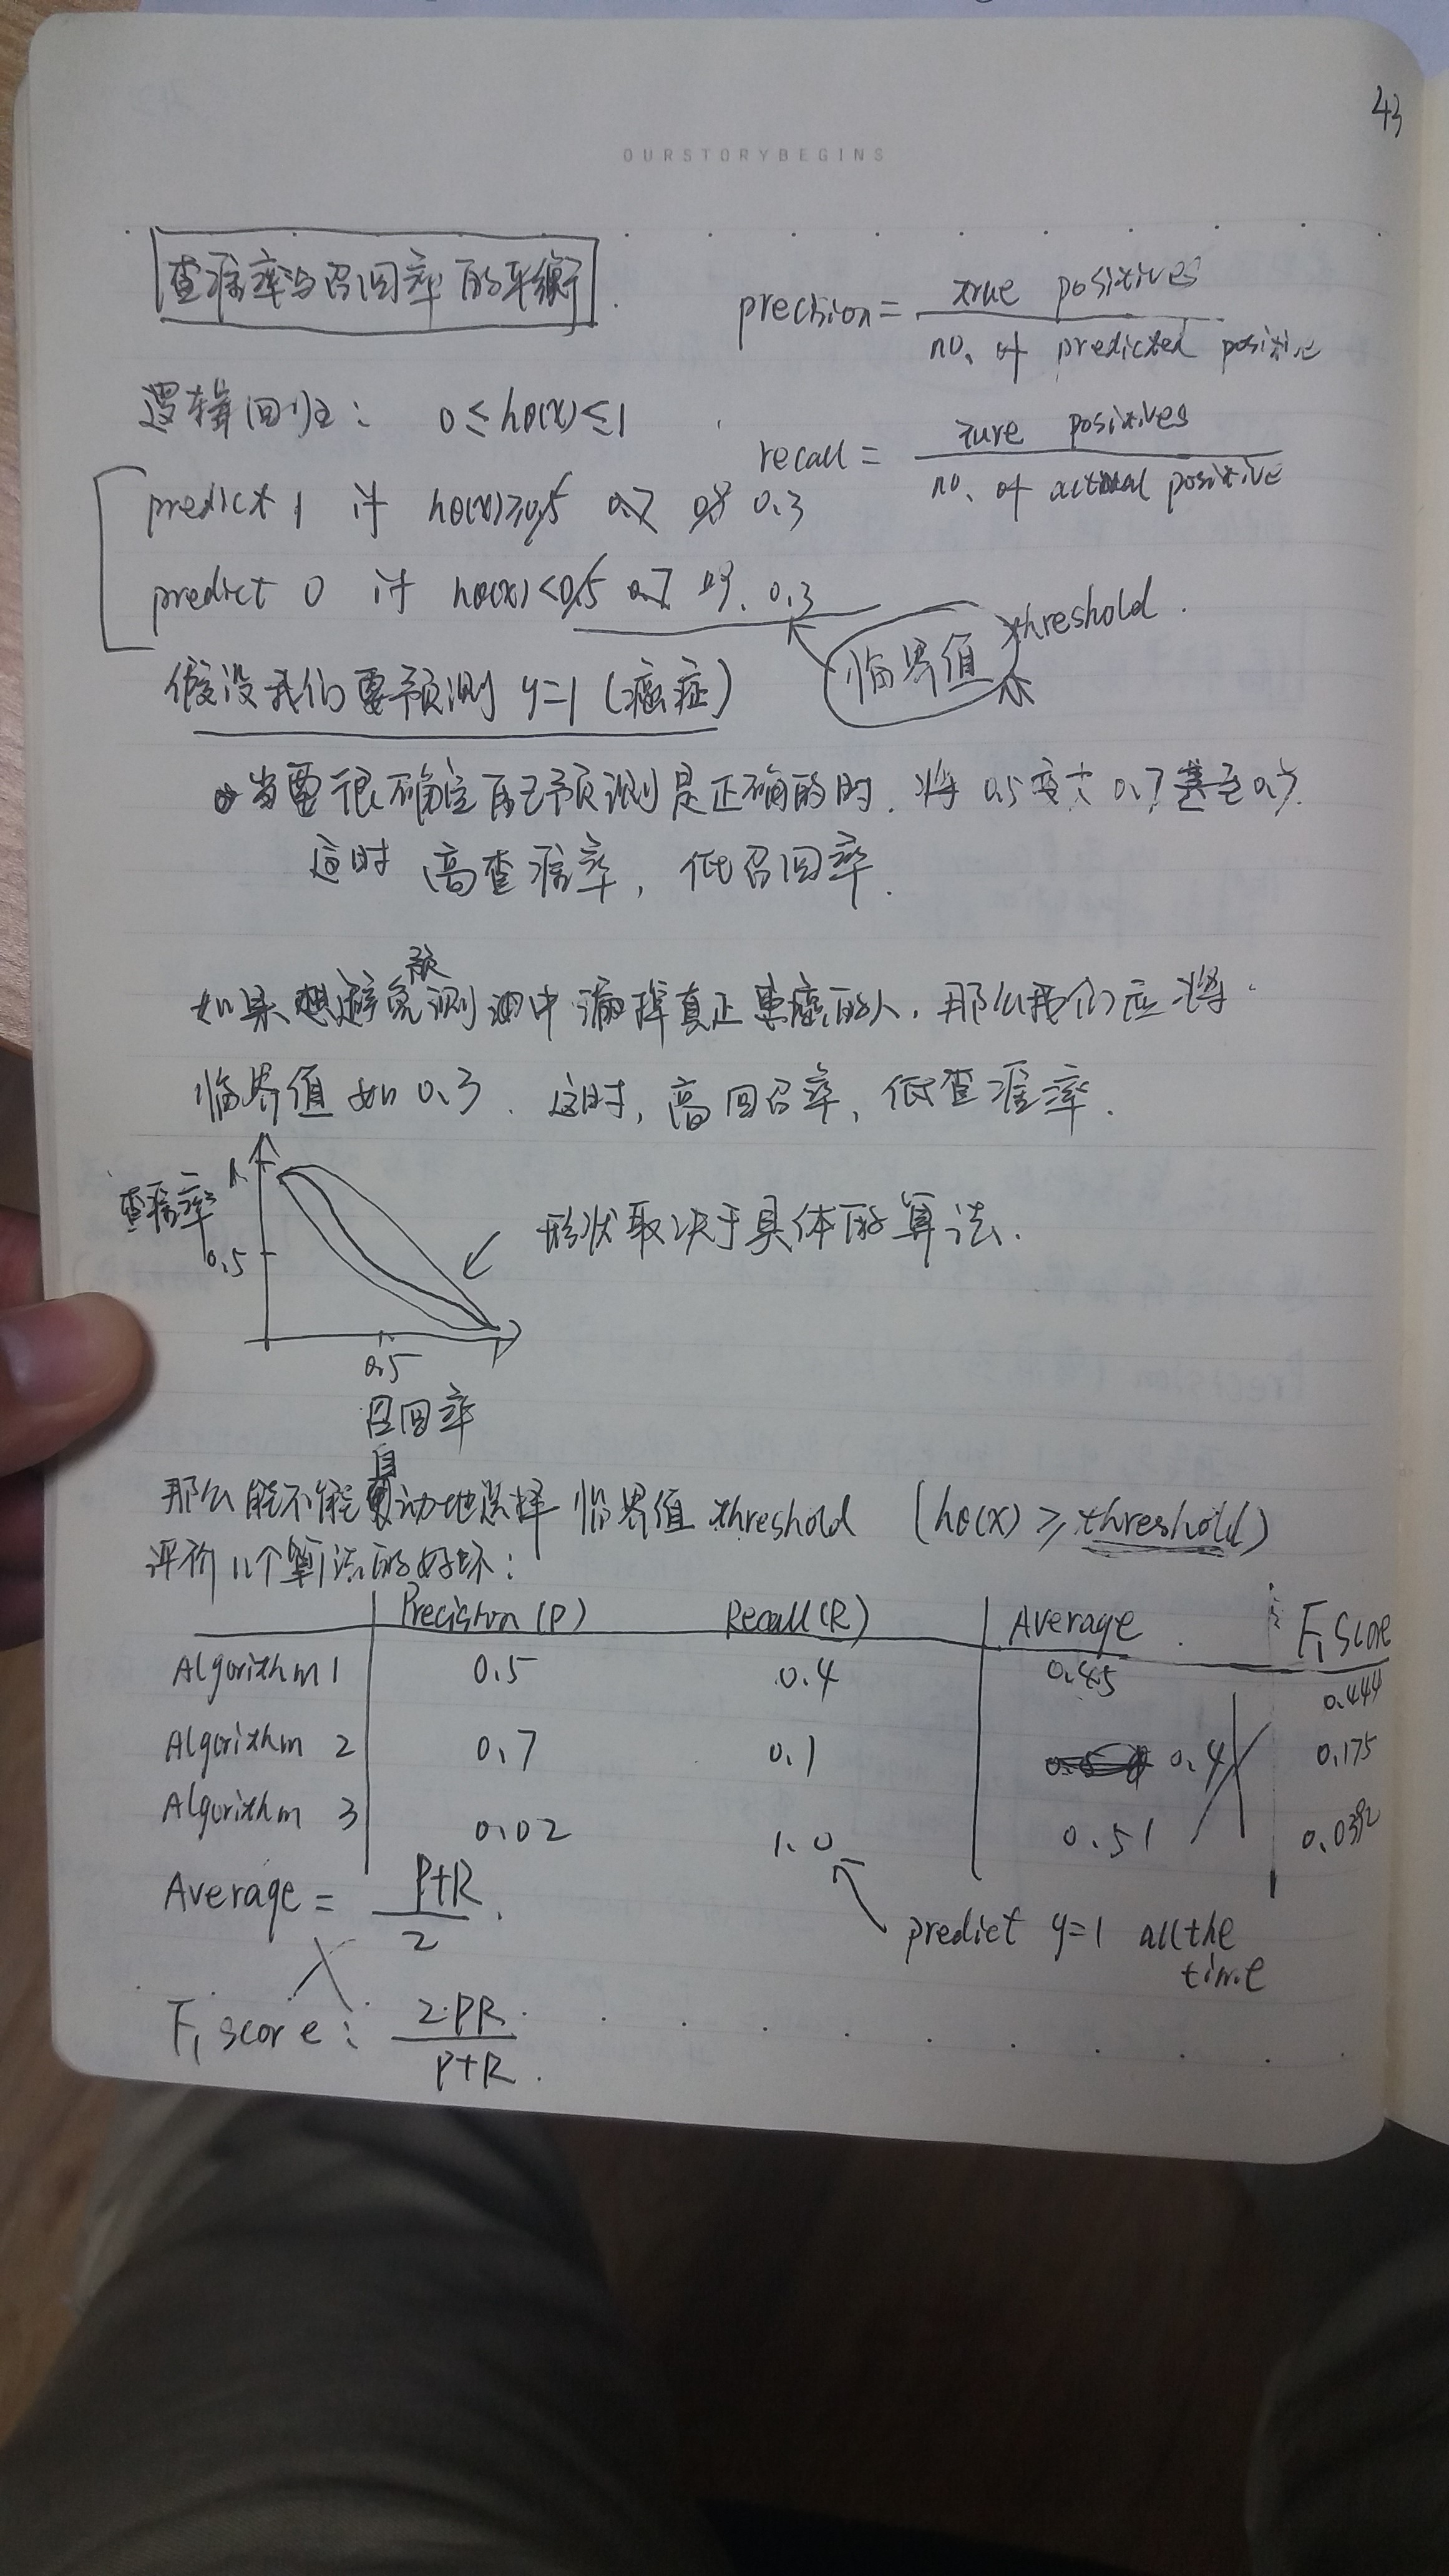 43
OURSTORYBEGINS
查准率与召回率的平衡
precision = true positives / no. of predicted positive
逻辑回归: 0≤hθ(x)≤1
recall = ture positives / no. of actual positive
predict 1 if hθ(x)≥0.5 0.7 0.9 0.3
predict 0 if hθ(x)<0.5 0.7 0.9. 0.3
临界值 threshold.
假设我们要预测 y=1 (癌症)
当要很确定自己预测是正确的时. 将 0.5变大 0.7甚至0.9.
这时 高查准率, 低召回率.
如果想避免预测中漏掉真正患癌的人, 那么我们应将
临界值如0.3. 这时, 高回召率, 低查准率.
查准率
1
0.5
形状取决于具体的算法.
0.5
1
召回率
那么能不能自动地选择 临界值 threshold (hθ(x) ≥ threshold)
评价几个算法的好坏:
Precision (P) Recall (R) Average F1 Score
Algorithm 1 0.5 0.4 0.45 0.444
Algorithm 2 0.7 0.1 0.4 0.175
Algorithm 3 0.02 1.0 0.51 0.0392
Average = P+R / 2.
predict y=1 all the
time
F1 score: 2·PR / P+R.